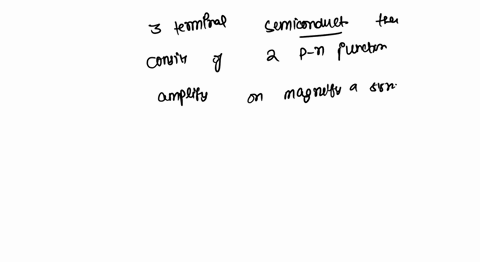 3 terminal semiconduct
consis of 2 p-n junction
amplify on magnify a